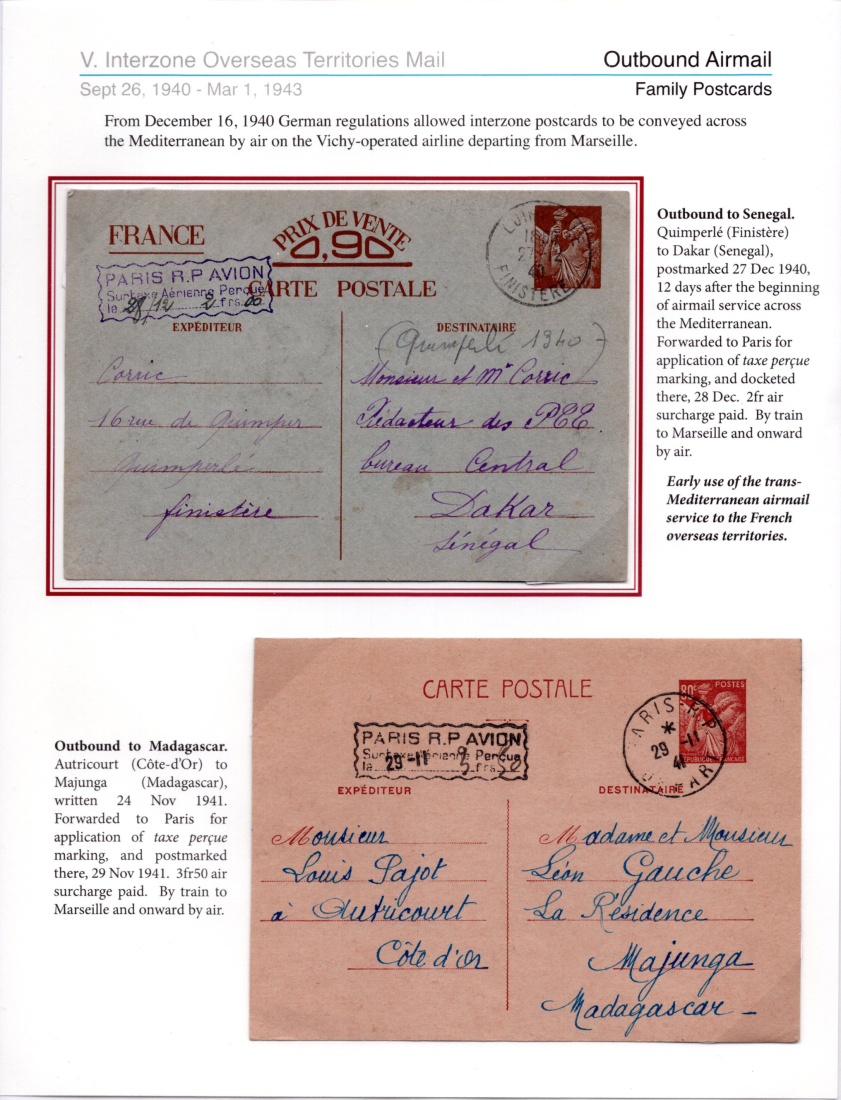 V. Interzone Overseas Territories Mail
Outbound Airmail
Sept 26, 1940 - Mar 1, 1943
Family Postcards
From December 16, 1940 German regulations allowed interzone postcards to be conveyed across
the Mediterranean by air on the Vichy-operated airline departing from Marseille.
FRANCE
PRIX DE VENTE
0,90
CARTE POSTALE
PARIS R.P AVION
Surtaxe Aérienne Perçue
le 28/12 2 frs 00
FINISTÈRE
EXPÉDITEUR
Corric
16 rue de Quimper
Quimperlé
finistère
DESTINATAIRE
(Quimperlé 1940)
Monsieur et Mme Corric
Rédacteur des PEE
bureau Central
Dakar
Sénégal
Outbound to Senegal.
Quimperlé (Finistère)
to Dakar (Senegal),
postmarked 27 Dec 1940,
12 days after the beginning
of airmail service across
the Mediterranean.
Forwarded to Paris for
application of taxe perçue
marking, and docketed
there, 28 Dec. 2fr air
surcharge paid. By train
to Marseille and onward
by air.
Early use of the trans-
Mediterranean airmail
service to the French
overseas territories.
CARTE POSTALE
80c POSTES
RÉPUBLIQUE FRANÇAISE
PARIS R.P AVION
Surtaxe Aérienne Perçue
le 29-11 3 frs 50
PARIS-R.P
29-11
41
EXPÉDITEUR
Monsieur
Louis Pajot
à Autricourt
Côte d'Or
DESTINATAIRE
Madame et Monsieur
Léon Gauche
La Résidence
Majunga
Madagascar -
Outbound to Madagascar.
Autricourt (Côte-d'Or) to
Majunga (Madagascar),
written 24 Nov 1941.
Forwarded to Paris for
application of taxe perçue
marking, and postmarked
there, 29 Nov 1941. 3fr50 air
surcharge paid. By train to
Marseille and onward by air.